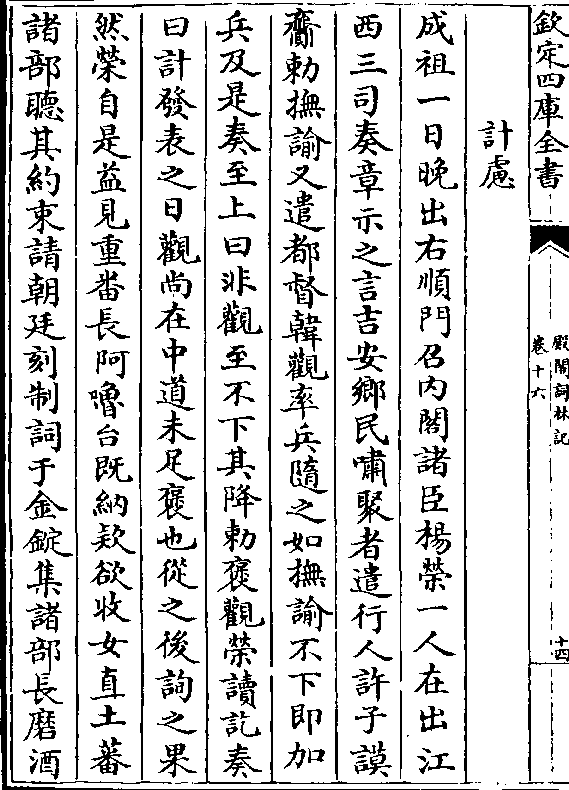 欽定四庫全書
殿閣詞林記
卷十六
十四
計慮
成祖一日晚出右順門召内閣諸臣楊榮一人在出江
西三司奏章示之言吉安鄉民嘯聚者遣行人許子謨
齎勅撫諭又遣都督韓觀率兵隨之如撫諭不下即加
兵及是奏至上曰非觀至不下其降勅褒觀榮讀訖奏
曰計發表之日觀尚在中道未足褒也從之後詢之果
然榮自是益見重番長阿嚕台既納欵欲收女直土蕃
諸部聽其約束請朝廷刻制詞于金錠集諸部長磨酒